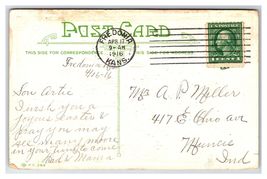 POST CARD
THIS SIDE FOR CORRESPONDENCE
FREDONIA
APR 17
9-AM
1916
KANS.
Fredonia
4/16-16
Son Artie
I wish you a
joyous Easter &
pray you may
see many more
in your time to come
Dad & Mama
Mr A. P. Miller
417 E Ohio ave
Muncie
Ind